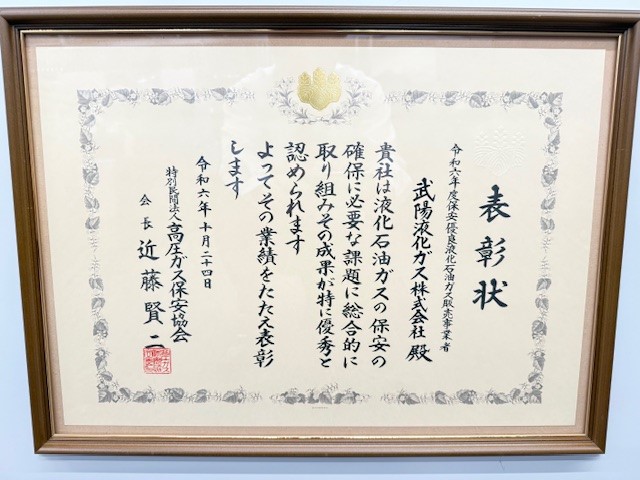 表彰状
令和六年度保安優良液化石油ガス販売事業者
武陽液化ガス株式会社 殿
貴社は液化石油ガスの保安の
確保に必要な課題に総合的に
取り組みその成果が特に優秀と
認められます
よってその業績をたたえ表彰
します
令和六年十月二十四日
特別民間法人高圧ガス保安協会
会長 近藤賢二